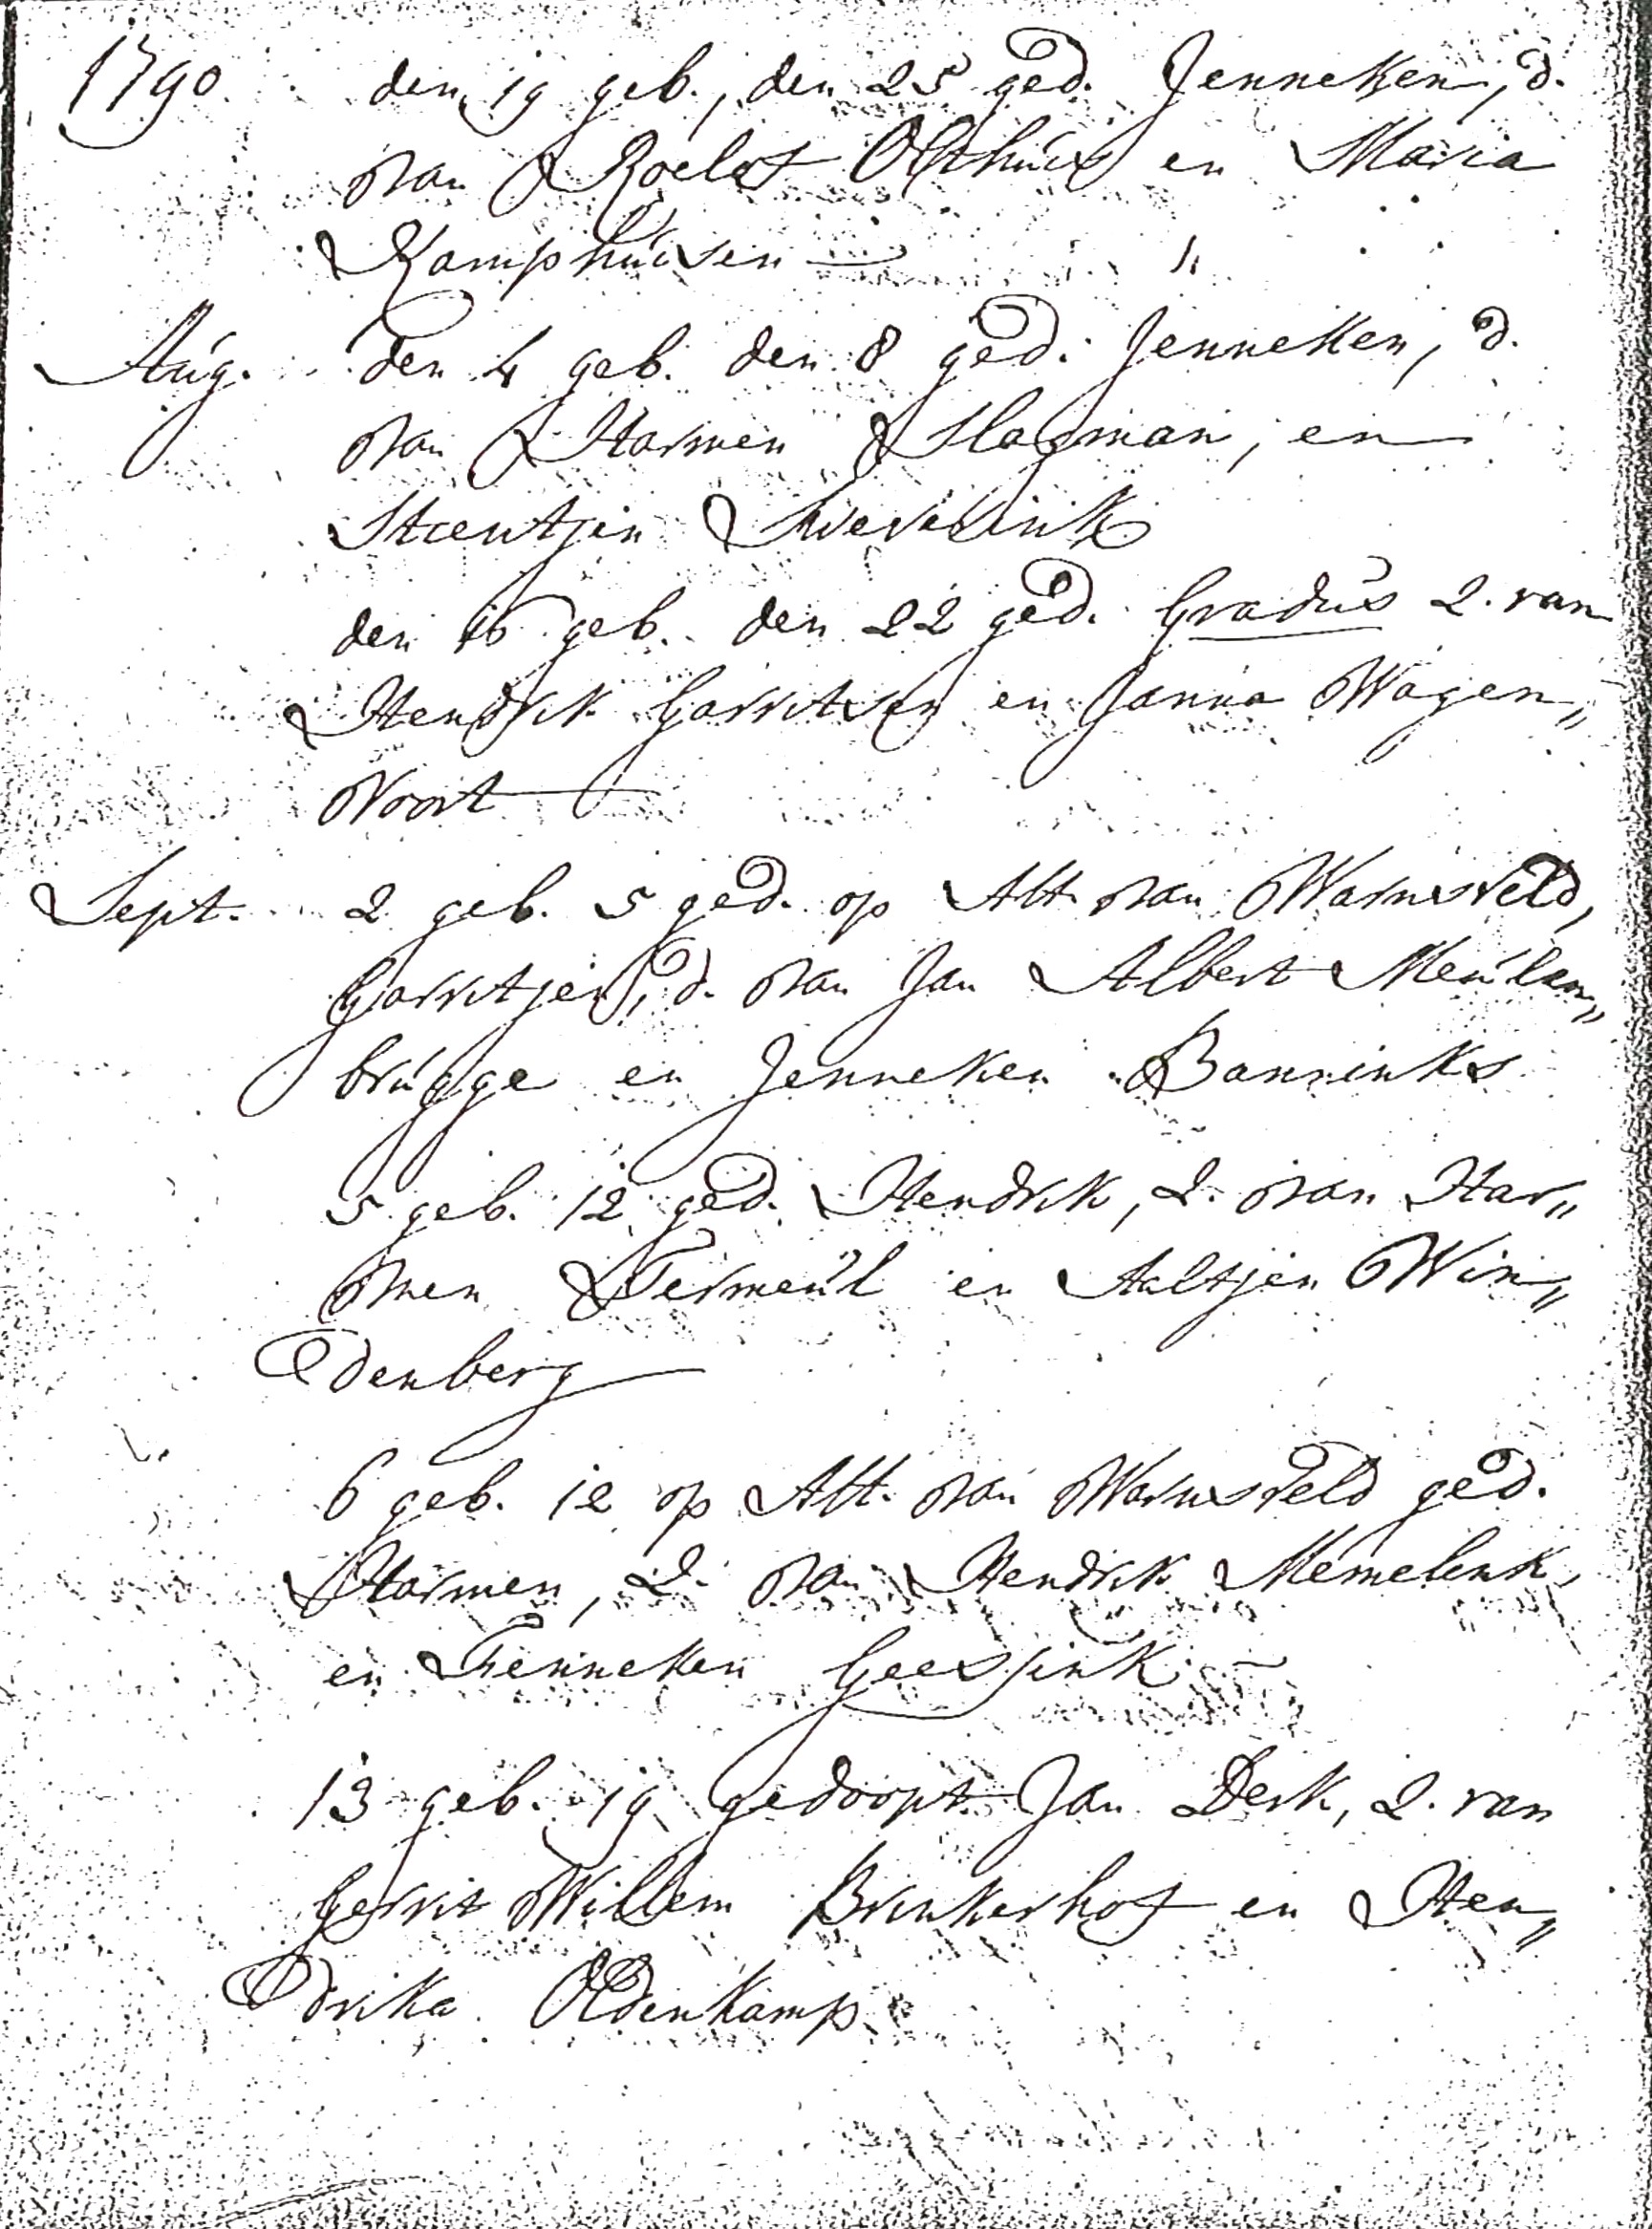 1790 den 19 geb., den 25 ged. Jenneken, d.
van Roelof Olthuis en Maria
Kamphuisen
Aug. den 4 geb. den 8 ged. Jenneken, d.
van Harmen Slagman, en
Steentjen
den 16 geb. den 22 ged. Gradus Z. van
Hendrik Garritsen en Janna Wagen„
Voort
Sept. 2 geb. 5 ged. op Att. van Warnsveld,
Garritjen, d. van Jan Albert Meulen„
brugge en Jenneken Banninks
5 geb. 12 ged. Hendrik, Z. van Har„
men Termeul en Aaltjen Win„
denberg
6 geb. 12 op Att. van Warnsveld ged.
Harmen, Z. van Hendrik Memelink,
en Fenneken Geesjink
13 geb. 19 gedoopt Jan Derk, Z. van
Gerrit Willem Brinkerhof en Hen„
drika Oldenkamp.